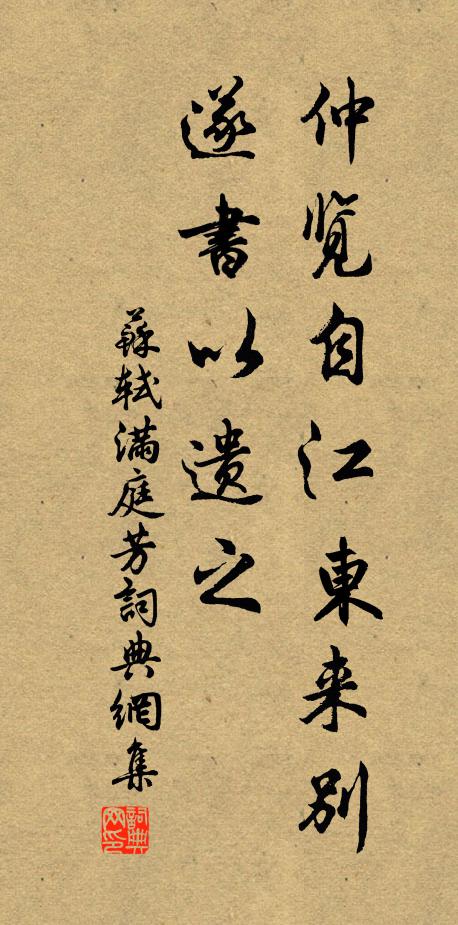 仲览自江東来別
遂書以遗之
蘇軾满庭芳詞典網集
詞典网印